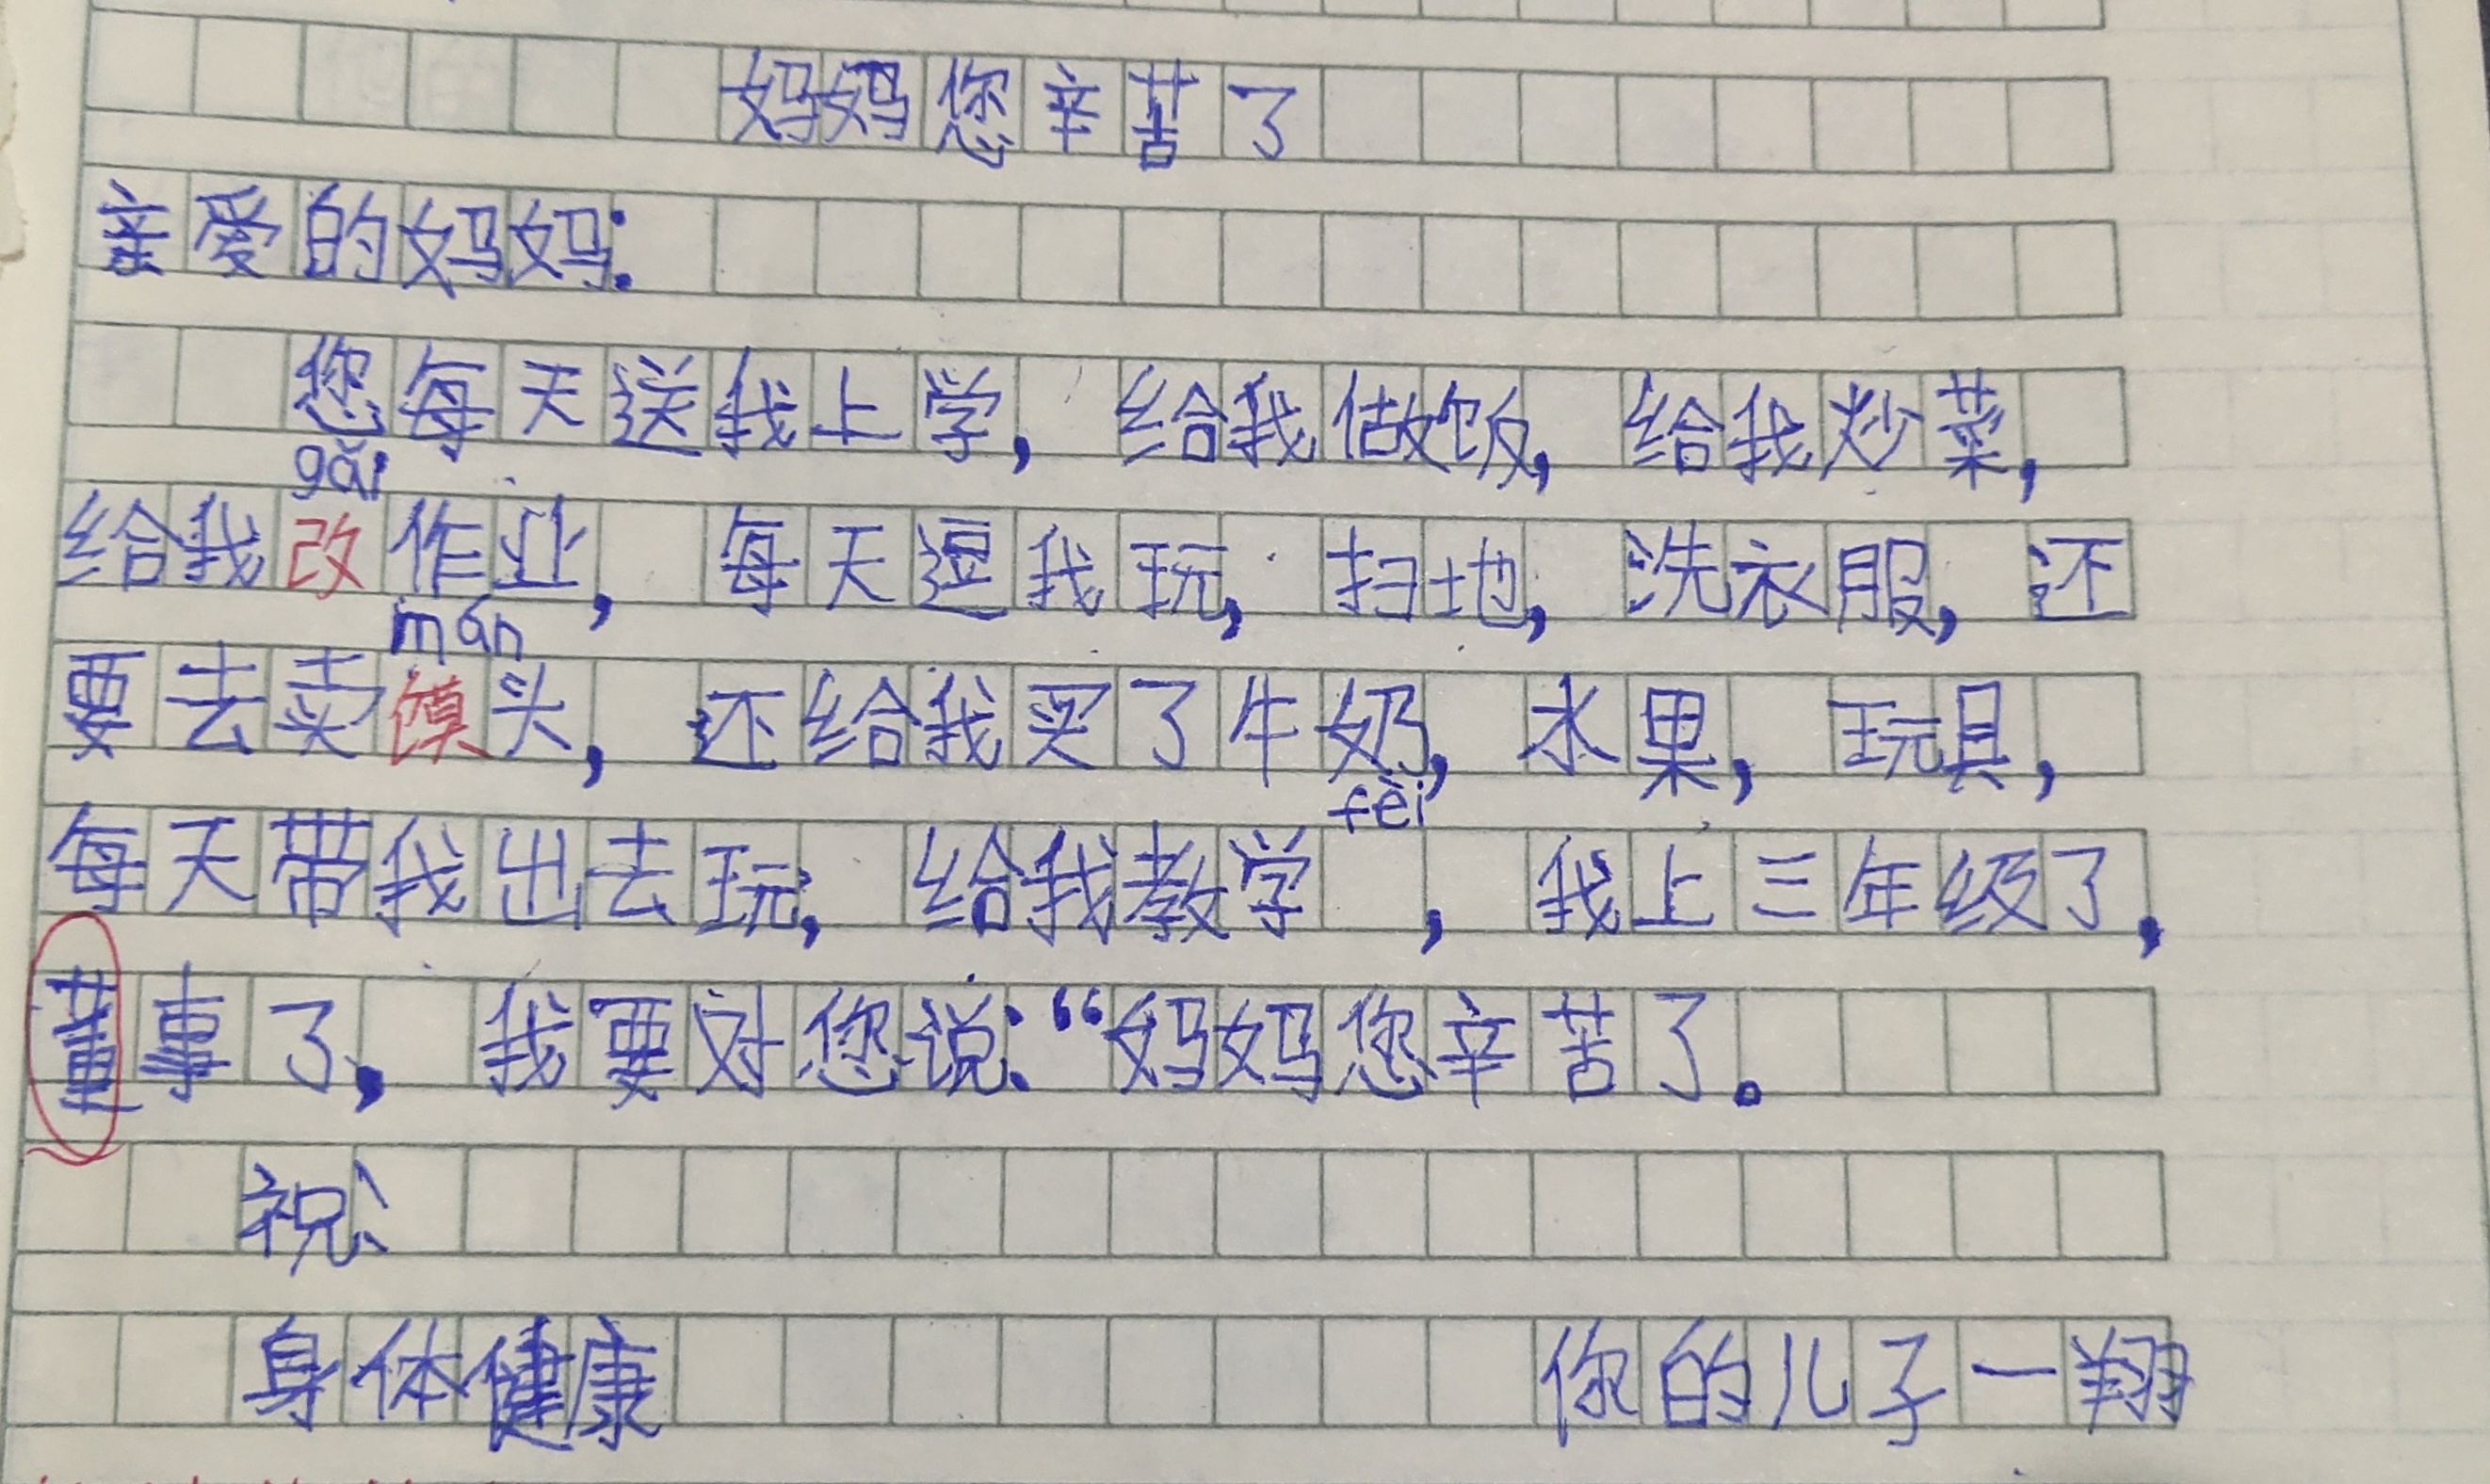 妈妈您辛苦了
亲爱的妈妈:
您每天送我上学,给我做饭,给我炒菜,
gǎi
给我改作业,每天逗我玩,扫地,洗衣服,还
mán
要去卖馍头,还给我买了牛奶,水果,玩具,
fèi
每天带我出去玩,给我教学 ,我上三年级了,
事了,我要对您说:“妈妈您辛苦了。
祝:
身体健康 你的儿子一翔